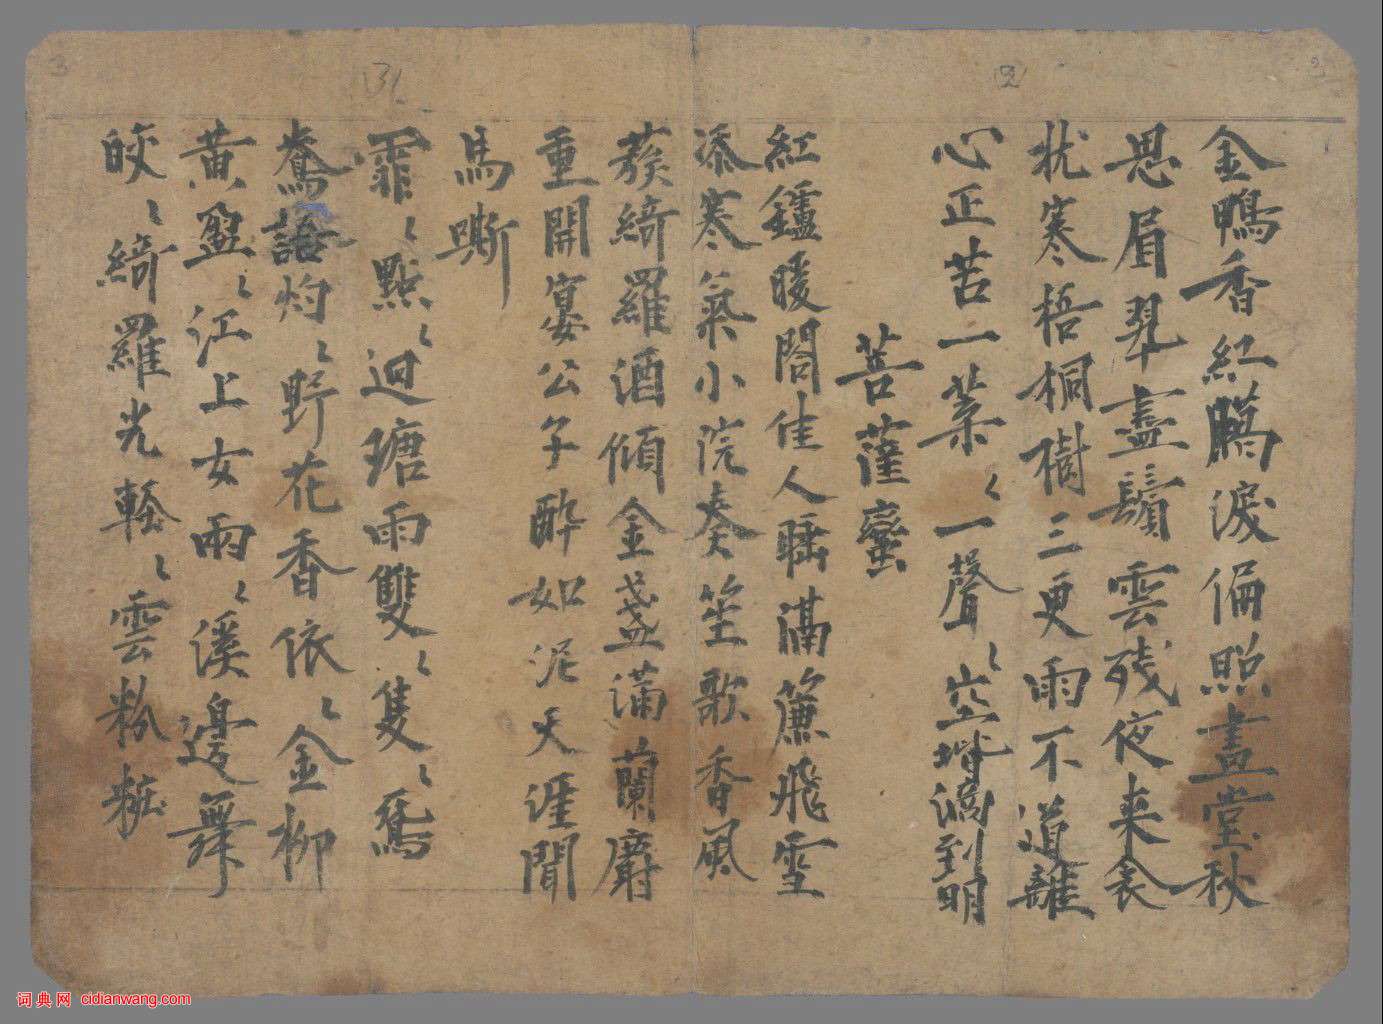 金鴨香紅臈淚偏照畫堂秋
思眉翠盡鬢雲残夜来衾
枕寒梧桐樹三更雨不道離
心正苦一葉〻一聲〻空堦滴到明
菩薩蠻
紅鑪暖閣佳人睡隔簾飛雪
添寒氣小院奏笙歌香風
蔟綺羅酒傾金盞滿蘭麝
重開宴公子醉如泥天涯聞
馬嘶
霏〻點〻迴塘雨雙〻隻〻鴛
鴦語灼〻野花香依〻金柳
黃盈〻江上女兩〻溪邊舞
皎〻綺羅光輕〻雲粉粧
词典网 cidianwang.com